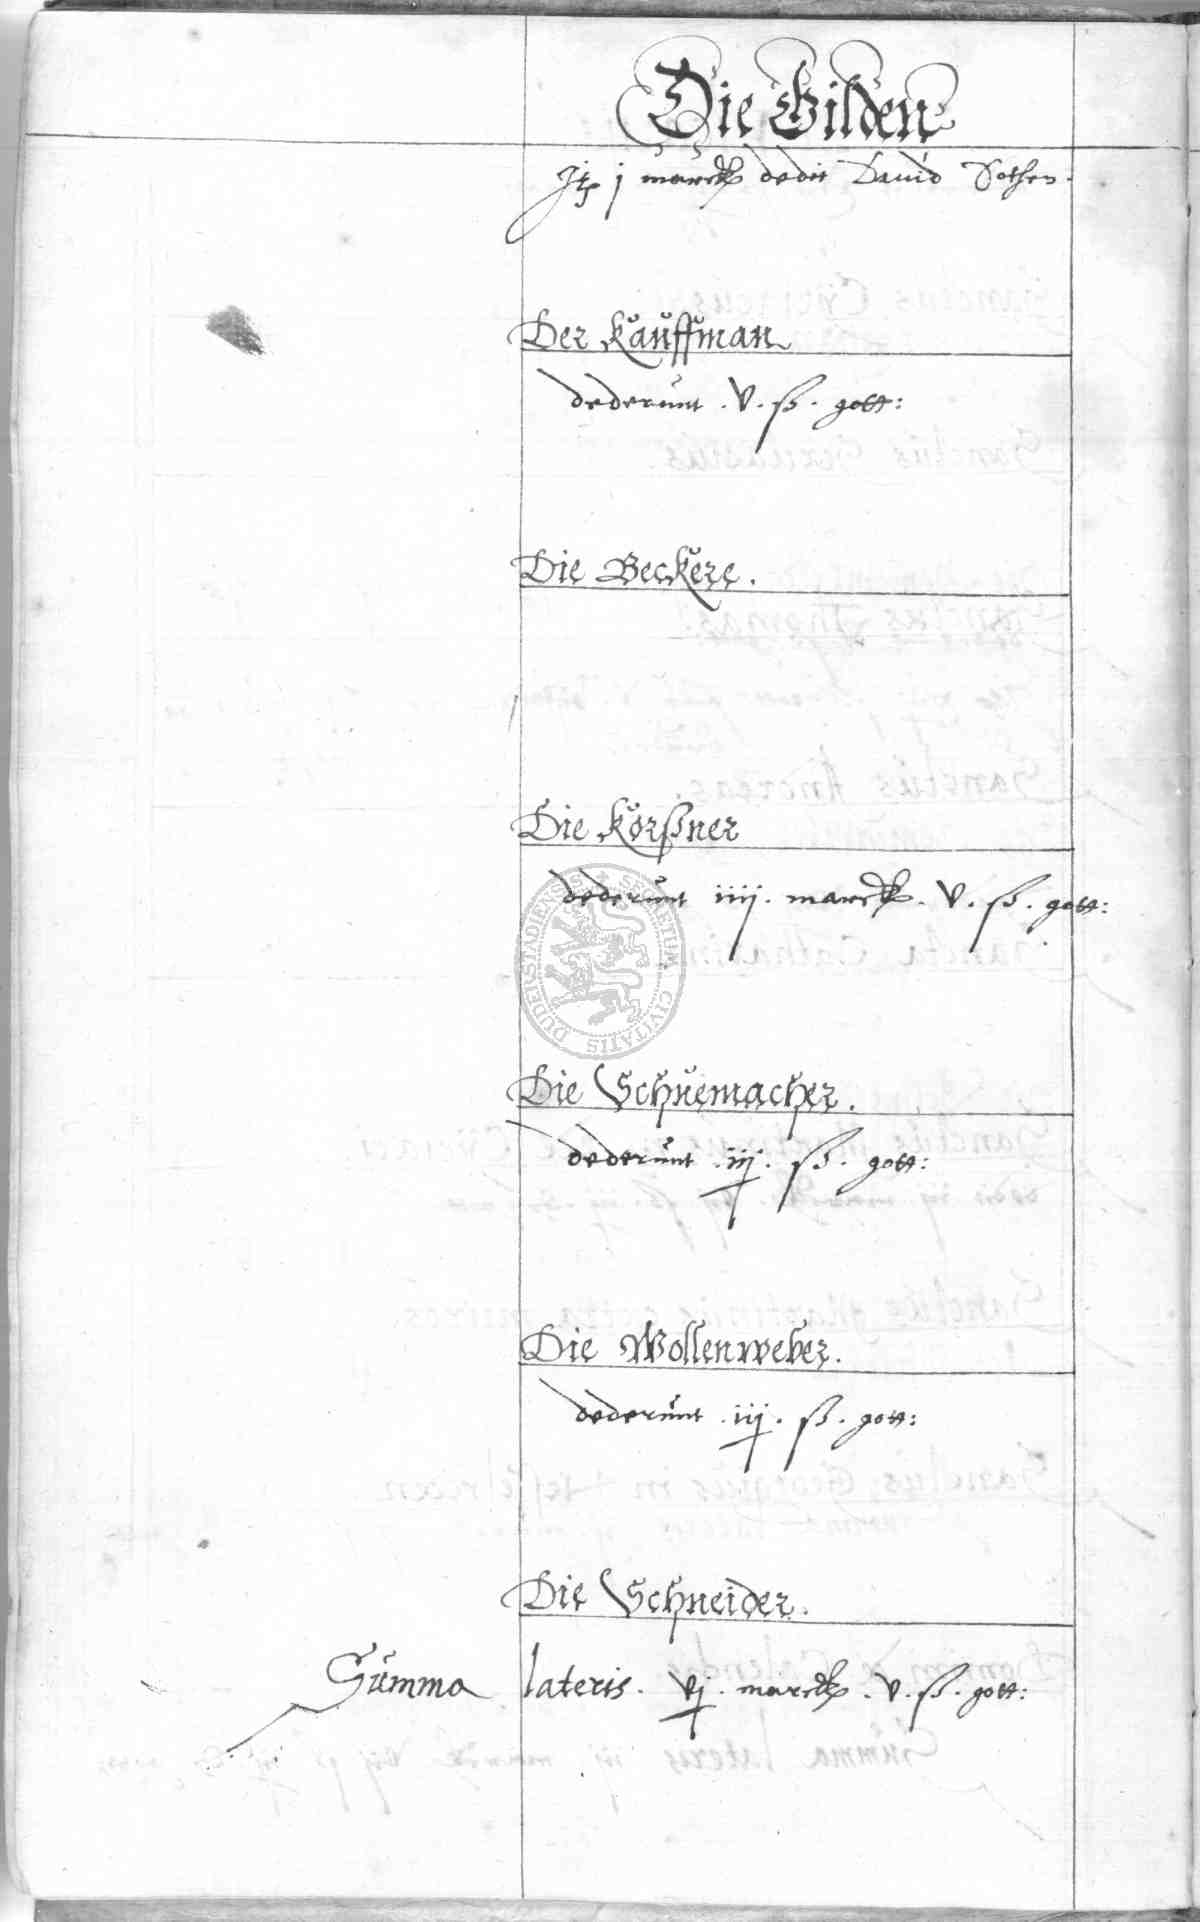 Die Gilden
Itz j marck dedit Dauid Sothen.
Der Kauffman
dederunt . v . ß . gott:
Die Beckere .
Die Körßner
dederunt iiij . marck . v . ß . gott:
SECRETUM CIVITATIS DUDERSTADIENSIS
Die Schuemacher .
dederunt . iij . ß . gott:
Die Wollenweber .
dederunt . iij . ß . gott:
Die Schneider .
Summa lateris . vj . marck . v . ß . gott: